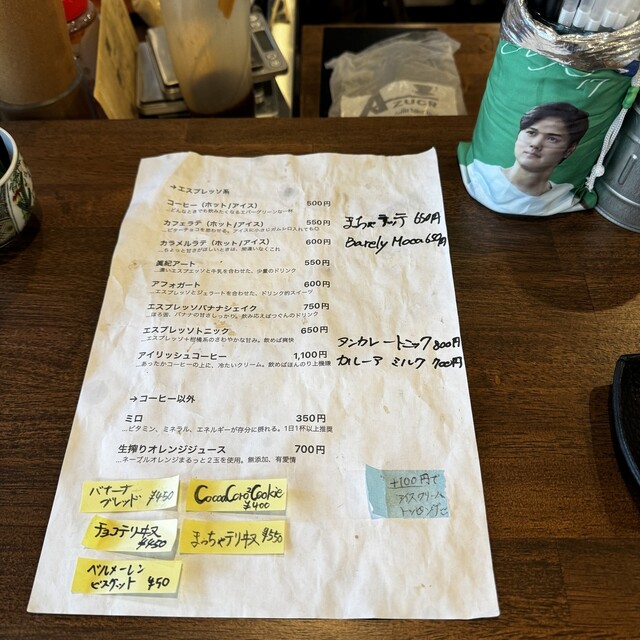 AZUCR
→エスプレッソ系
コーヒー（ホット/アイス） 500円
…どんなときでも飲みたくなるエバーグリーンな一杯
カフェラテ（ホット/アイス） 550円
まっちゃラッテ 650円
カラメルラテ（ホット/アイス） 600円
…ちょっと甘さがほしいときは、間違いなくこれ
Barely Moca 650円
眞紀アート 550円
…濃いエスプレッソと牛乳を合わせた、少量のドリンク
アフォガート 600円
…エスプレッソとジェラートを合わせた、ドリンク的スイーツ
エスプレッソバナナシェイク 750円
…ほら苦、バナナの甘さしっかり。飲み応えばつぐんのドリンク
エスプレッソトニック 650円
…エスプレッソ＋柑橘系のさわやかな甘み。飲めば爽快
タンカレートニック 800円
アイリッシュコーヒー 1,100円
…あったかコーヒーの上に、冷たいクリーム。飲めばほんのり上機嫌
カルーア ミルク 700円
→コーヒー以外
ミロ 350円
…ビタミン、ミネラル、エネルギーが存分に摂れる。1日1杯以上推奨
生搾りオレンジジュース 700円
…ネーブルオレンジまるっと２玉を使用。無添加、有愛情
バナーナ
ブレッド ¥450
Cocoa Coro² Cookie
¥400
チョコテリーヌ
¥450
まっちゃテリーヌ ¥550
ベルメーレン
ビスケット ¥50
+100円で
アイスクリーム
トッピング